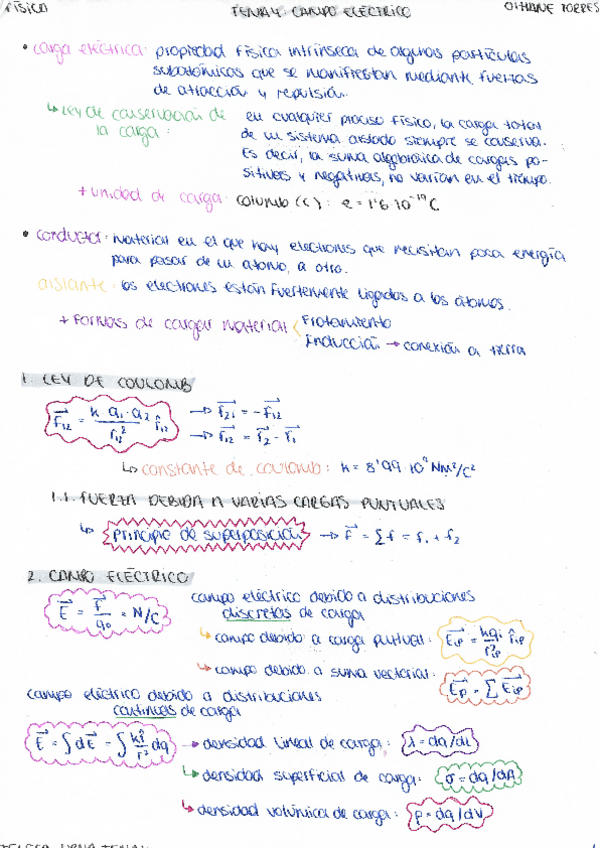 FÍSICA TEMA 4: CAMPO ELÉCTRICO OIHANE TORRES
• carga eléctrica: propiedad física intrínseca de algunas partículas
subatómicas que se manifiestan mediante fuerzas
de atracción y repulsión.
↳ Ley de conservación de la carga: en cualquier proceso físico, la carga total
de un sistema aislado siempre se conserva.
Es decir, la suma algebraica de cargas po-
sitivas y negativas, no varían en el tiempo.
+ unidad de carga: columb (C): e = 1'6 10⁻¹⁹ C
• conductor: material en el que hay electrones que necesitan poca energía
para pasar de un átomo, a otro.
aislante: los electrones están fuertemente ligados a los átomos.
+ Formas de cargar material { Frotamiento
Inducción → conexión a tierra
1. LEY DE COULOMB
F₁₂ = k q₁ · q₂ / r₁₂² r̂₁₂ → F₂₁ = - F₁₂
→ r₁₂ = r₂ - r₁
↳ constante de coulomb: k = 8'99 10⁹ Nm²/C²
1.1. FUERZA DEBIDA A VARIAS CARGAS PUNTUALES
↳ principio de superposición → F = Σ f = f₁ + f₂
2. CAMPO ELÉCTRICO
E = F / q₀ = N/C campo eléctrico debido a distribuciones
discretas de carga
↳ campo debido a carga puntual: E_ip = kq_i / r²_ip r̂_ip
↳ campo debido a suma vectorial: E_p = Σ E_ip
campo eléctrico debido a distribuciones
continuas de carga
E = ∫ dE = ∫ k r̂ / r² dq → densidad lineal de carga: λ = dq/dL
↳ densidad superficial de carga: σ = dq/dA
↳ densidad volúmica de carga: ρ = dq/dV